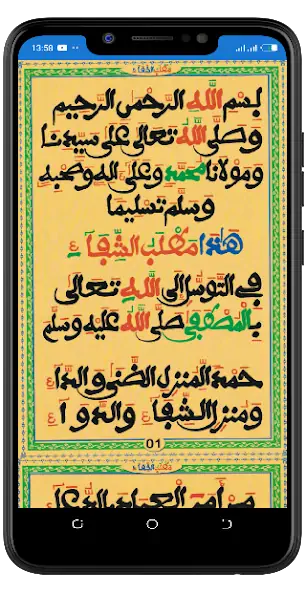 13:58
مهلب الشفاء
بسم الله الرحمن الرحيم
وصلى الله تعالى على سيدنا
ومولانا محمد وعلى اله وصحبه
وسلم تسليما
هذا مهلب الشفاء
في التوسل الى الله تعالى
بالمصطفى صلى الله عليه وسلم
حمدا لمنزل الضنى والداء
ومنزل الشفاء والدواء
01